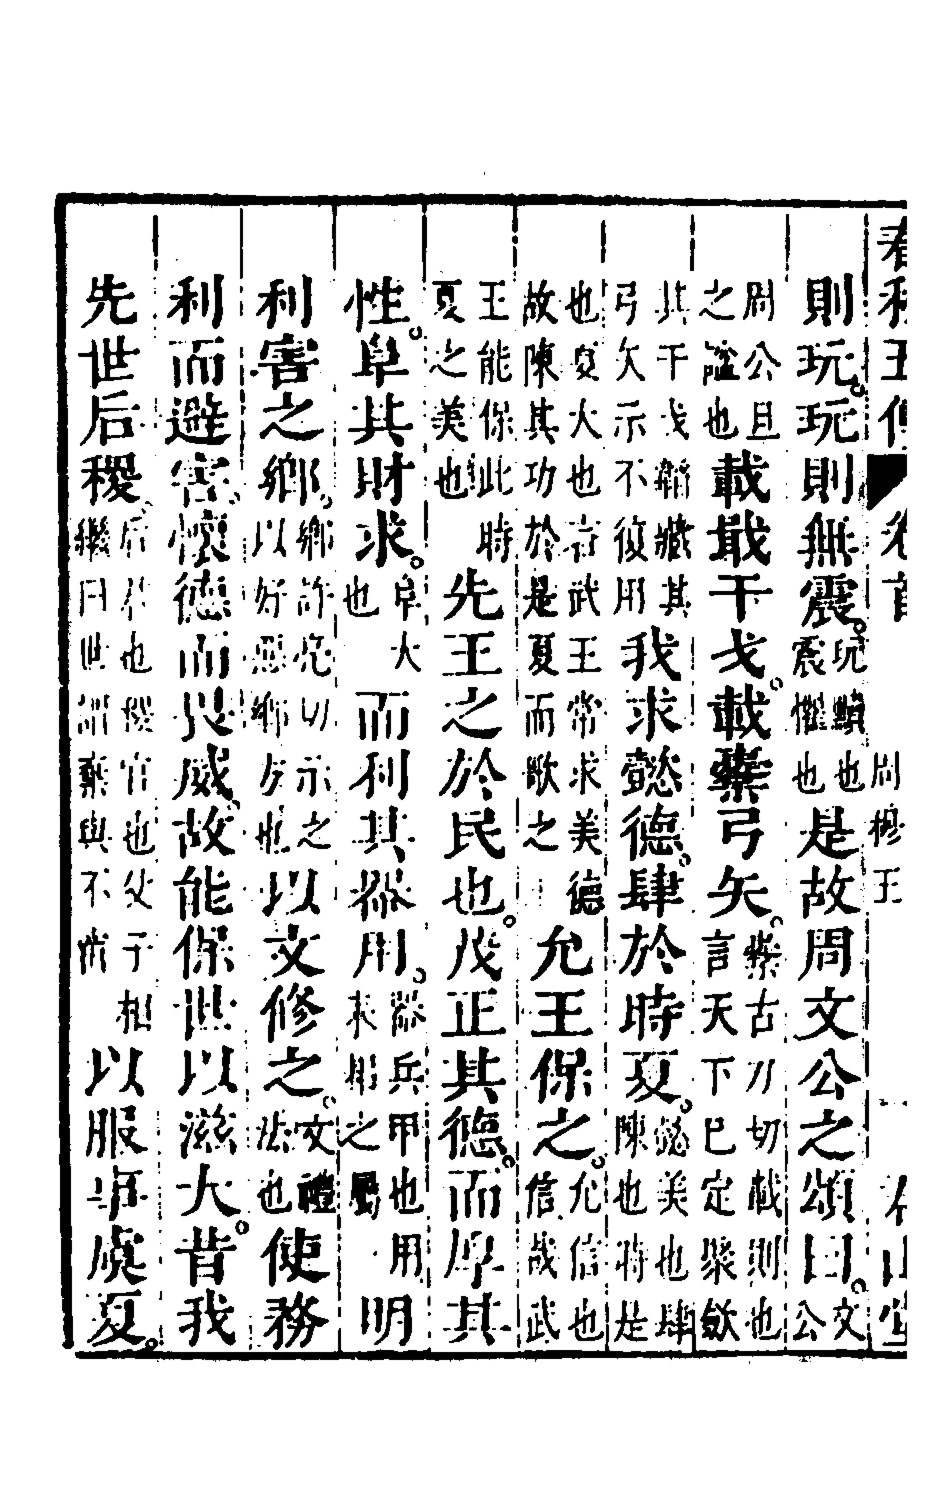 春秋五傳 卷首 周穆王
則玩。玩則無震。玩黷也震懼也是故周文公之頌曰。文公
周公旦之謚也載戢干戈。載櫜弓矢。櫜古刀切載則也言天下已定聚斂
其干戈韜藏其弓矢示不復用我求懿德。肆於時夏。懿美也肆陳也時是
也夏大也言武王常求美德故陳其功於是夏而歌之允王保之。允信也信哉武
王能保此時夏之美也先王之於民也。茂正其德。而厚其
性。阜其財求。阜大也而利其器用。器兵甲也用耒耜之屬明
利害之鄉。鄉許亮切示之以好惡鄉方也以文修之。文禮法也使務
利而避害。懷德而畏威。故能保世以滋大。昔我
先世后稷。后君也稷官也父子相繼曰世謂棄與不窋以服事虞夏。